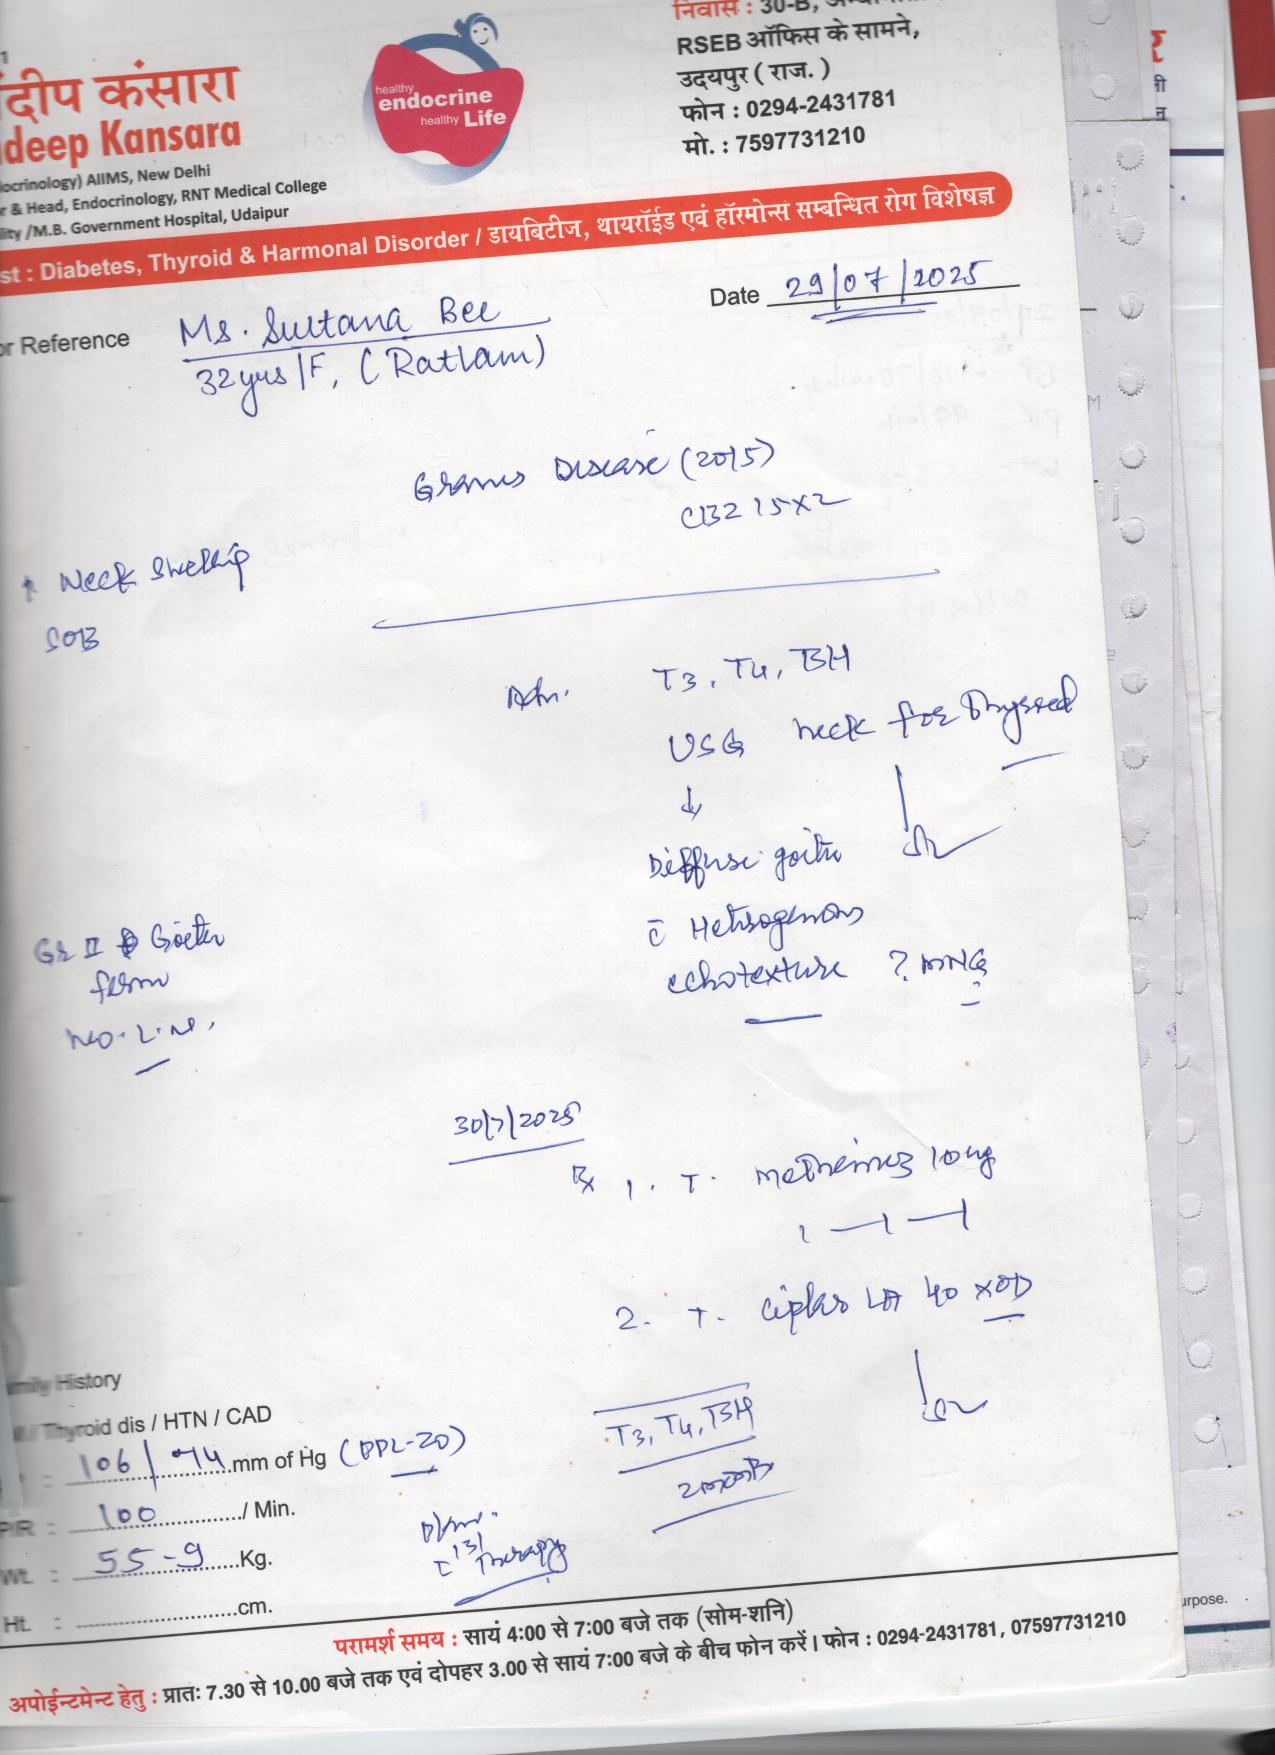 निवास : 30-B,
RSEB ऑफिस के सामने,
उदयपुर ( राज. )
फोन : 0294-2431781
मो. : 7597731210
दीप कंसारा
deep Kansara
ocrinology) AIIMS, New Delhi
r & Head, Endocrinology, RNT Medical College
lity /M.B. Government Hospital, Udaipur
healthy
endocrine
healthy Life
st : Diabetes, Thyroid & Harmonal Disorder / डायबिटीज, थायरॉईड एवं हॉरमोन्स सम्बन्धित रोग विशेषज्ञ
Date 29/07/2025
or Reference Ms. Sultana Bee
32yrs/F, (Ratlam)
Graves Disease (2015)
CBZ 15x2
↑ Neck Swelling
SOB
Adv. T3, T4, TSH
USG neck for Thyroid
↓
Diffuse goitre
c̄ Hetrogenous
echotexture ? MNG
Gr II Goitre
firm
No. L.N.
30/7/2025
Rx 1. T. Methimez 10mg
1—1—1
2. T. Ciplar LA 40 x OD
T3, T4, TSH
2 month
mily History
Thyroid dis / HTN / CAD
: 106/74 mm of Hg (DDL-20)
P/R : 100 / Min.
Wt. : 55-9 Kg.
Ht. : cm.
131
Therapy
urpose.
परामर्श समय : सायं 4:00 से 7:00 बजे तक (सोम-शनि)
अपोईन्टमेन्ट हेतु : प्रातः 7.30 से 10.00 बजे तक एवं दोपहर 3.00 से सायं 7:00 बजे के बीच फोन करें। फोन : 0294-2431781, 07597731210